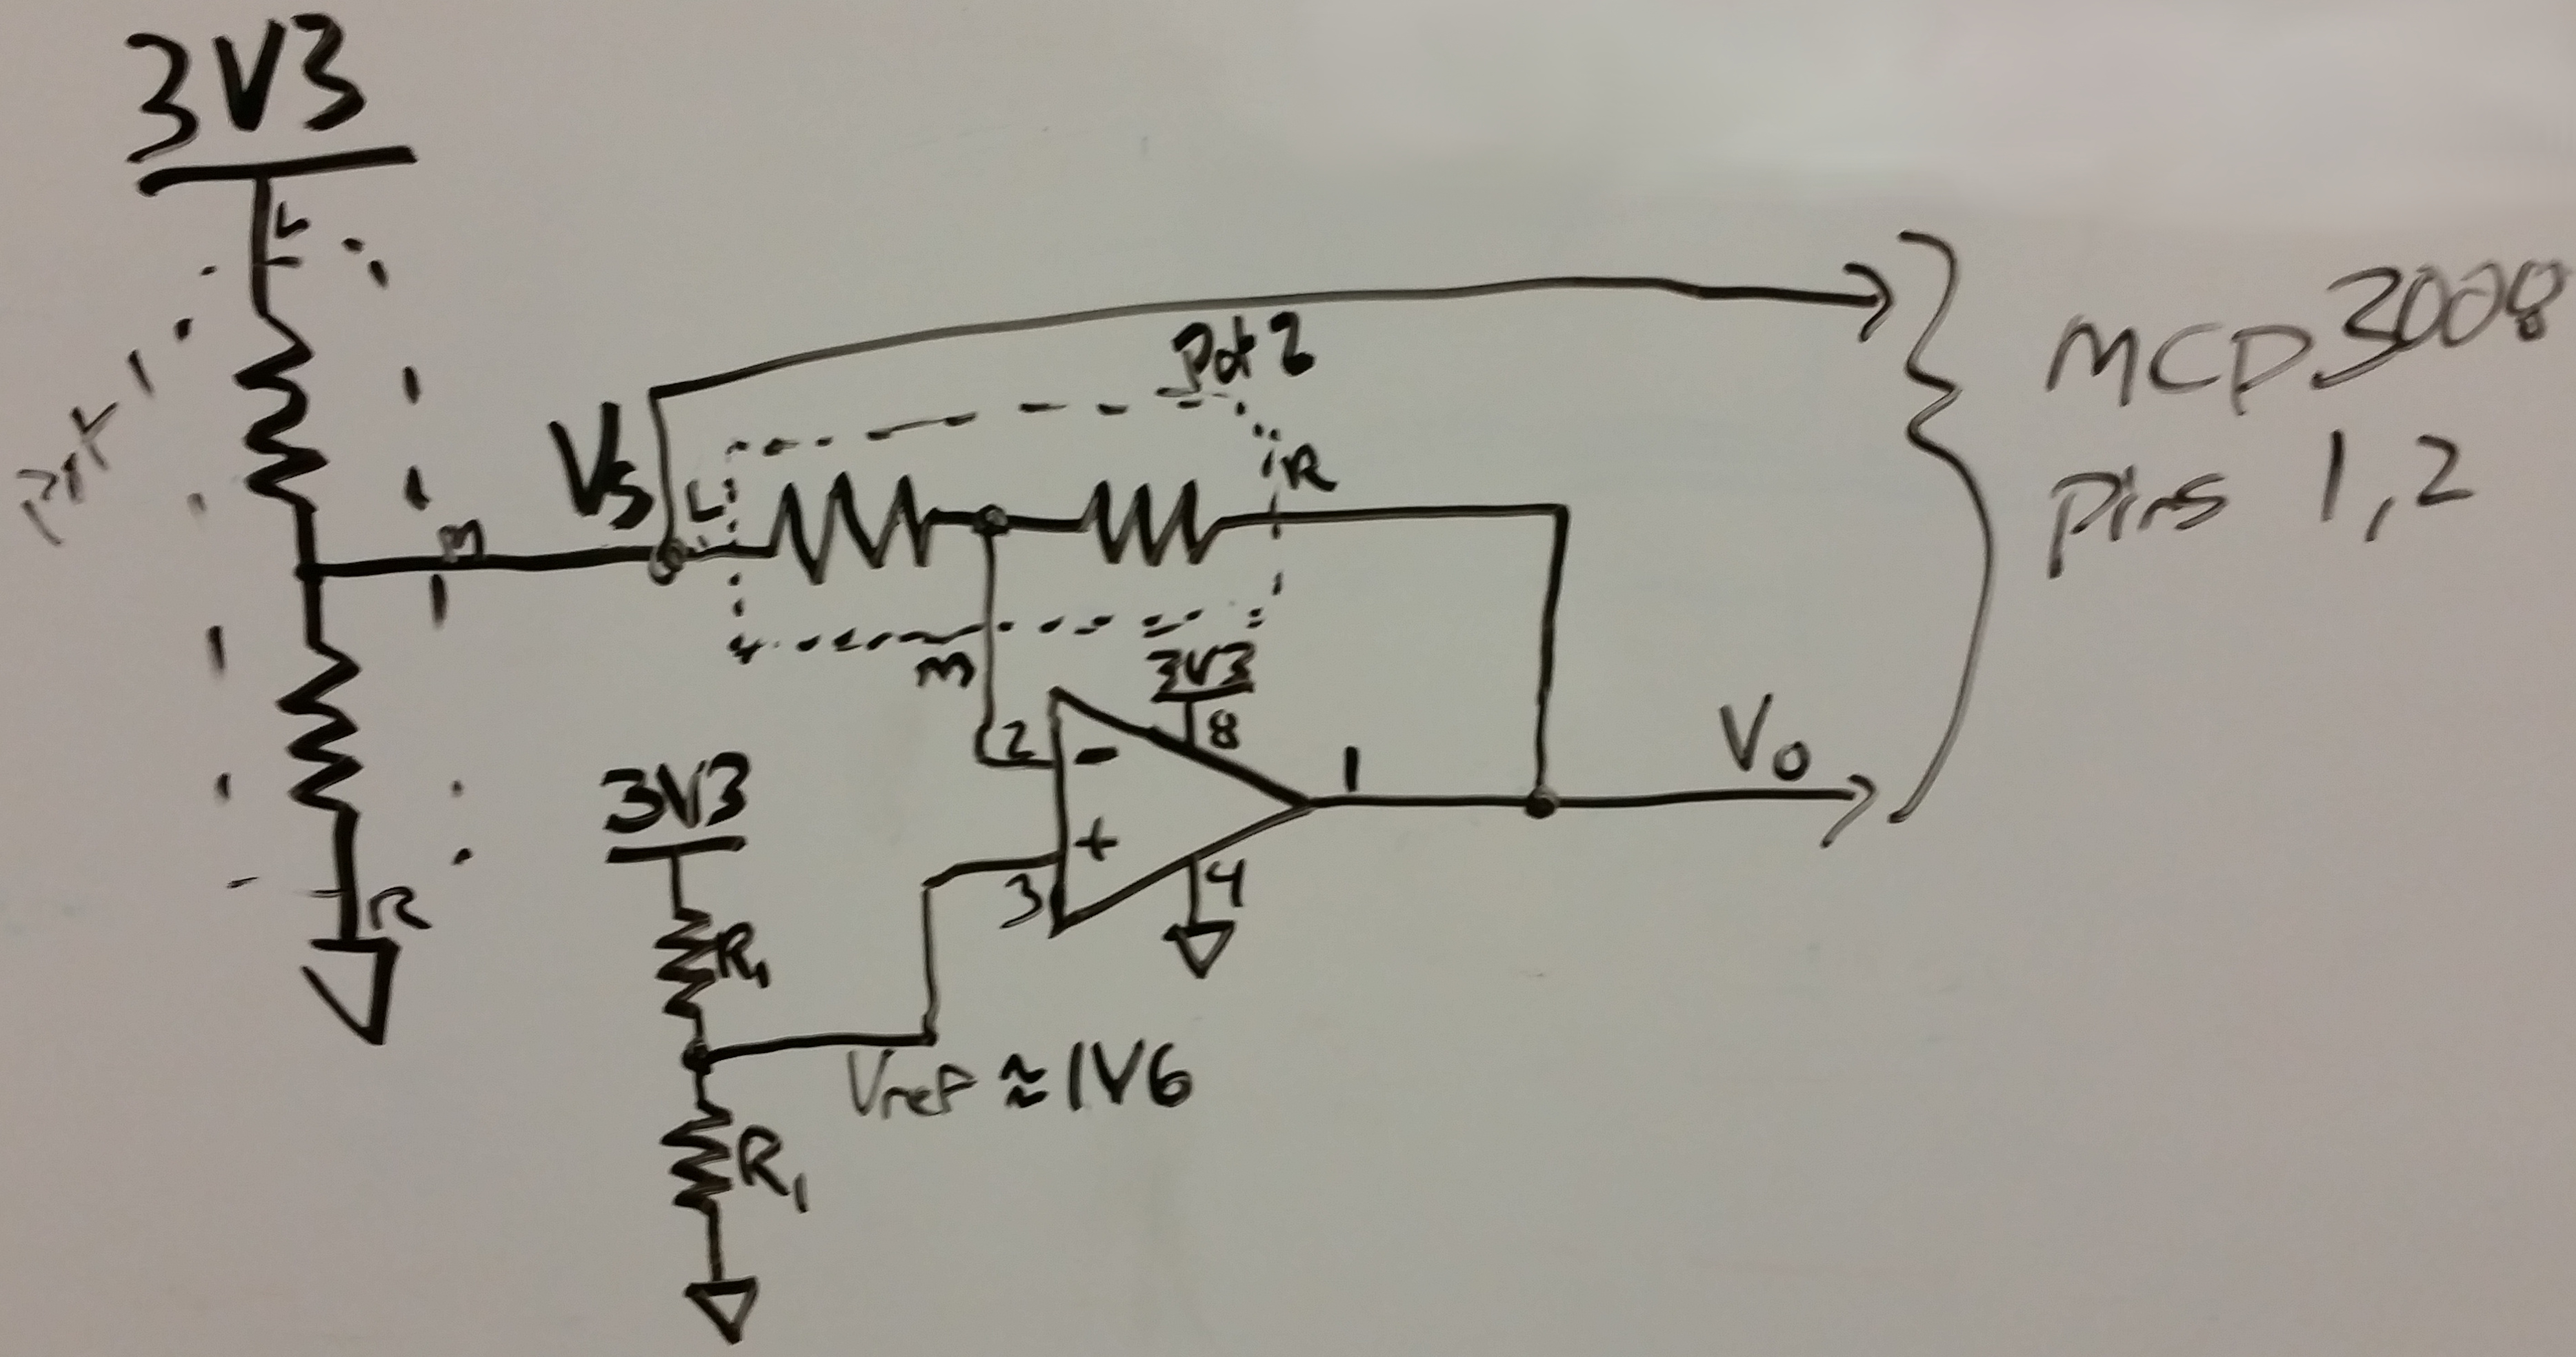 3V3
L
Pot 1
m
R
Vs
L
Pot 2
R
m
3V3
8
2
-
+
3
4
1
Vo
3V3
R1
R1
Vref ≈ 1V6
MCP3008
Pins 1,2